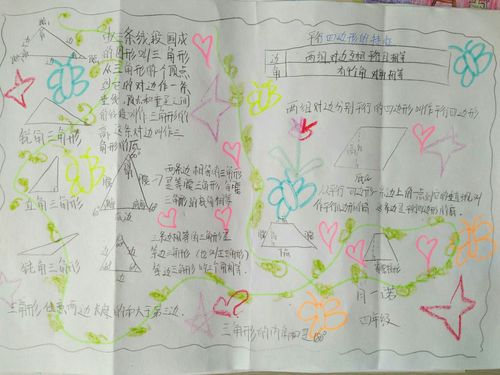 由三条线段围成
的图形叫三角形
从三角形的个顶点
到它的对边作一条
垂线，顶点和垂足之间
的线段叫作三角形的
高，这条对边叫作三
角形的底
锐角三角形
直角三角形
钝角三角形
两条边相等的三角形
是等腰三角形，
腰
腰
底边
三条边相等的三角形是
等边三角形（也叫正三角形）
等边三角形的三个角相等
三角形任意两边长度的和大于第三边.
三角形的内角和是180°
平行四边形的特点
边
两组对边互相平行且相等
角
两组对边分别平行的四边形叫作平行四边形
底
从平行四边形一条边上的一点到它的垂直线段叫
作平行四边形的高，这条边是平行四边形的底.
下底
肖一诺
四年级